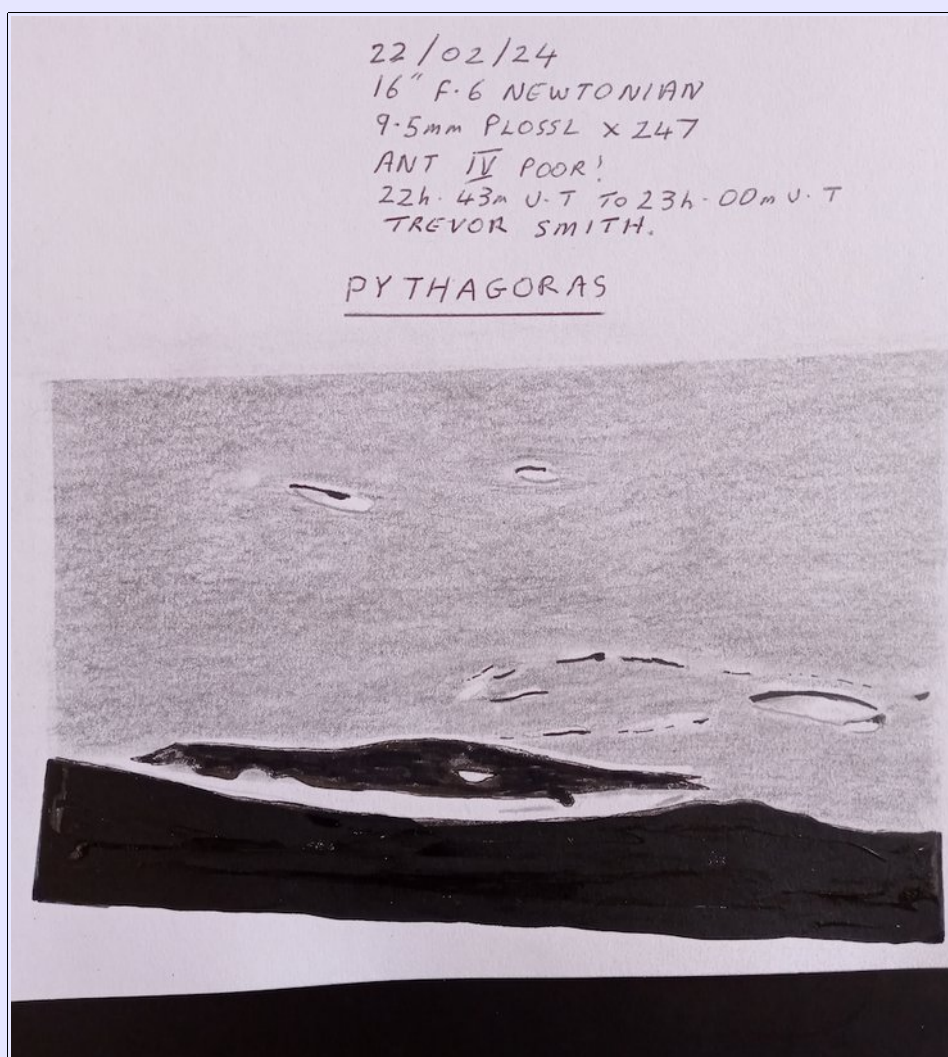 22/02/24
16" F.6 NEWTONIAN
9.5mm PLOSSL x 247
ANT IV POOR!
22h. 43m U.T TO 23h. 00m U.T
TREVOR SMITH.
PYTHAGORAS